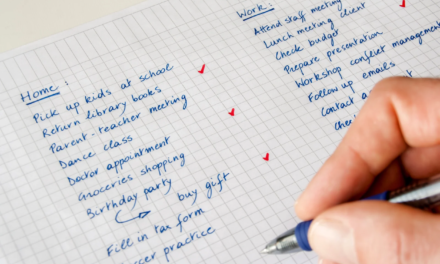 Home :
Pick up kids at school
Return library books
Parent-teacher meeting
Dance class
Doctor appointment
Groceries shopping
Birthday party
buy gift
Fill in tax form
practice
Work:
Attend staff meeting
Lunch meeting client
Check budget
Prepare presentation
Workshop conflict management
Follow up emails
Contact